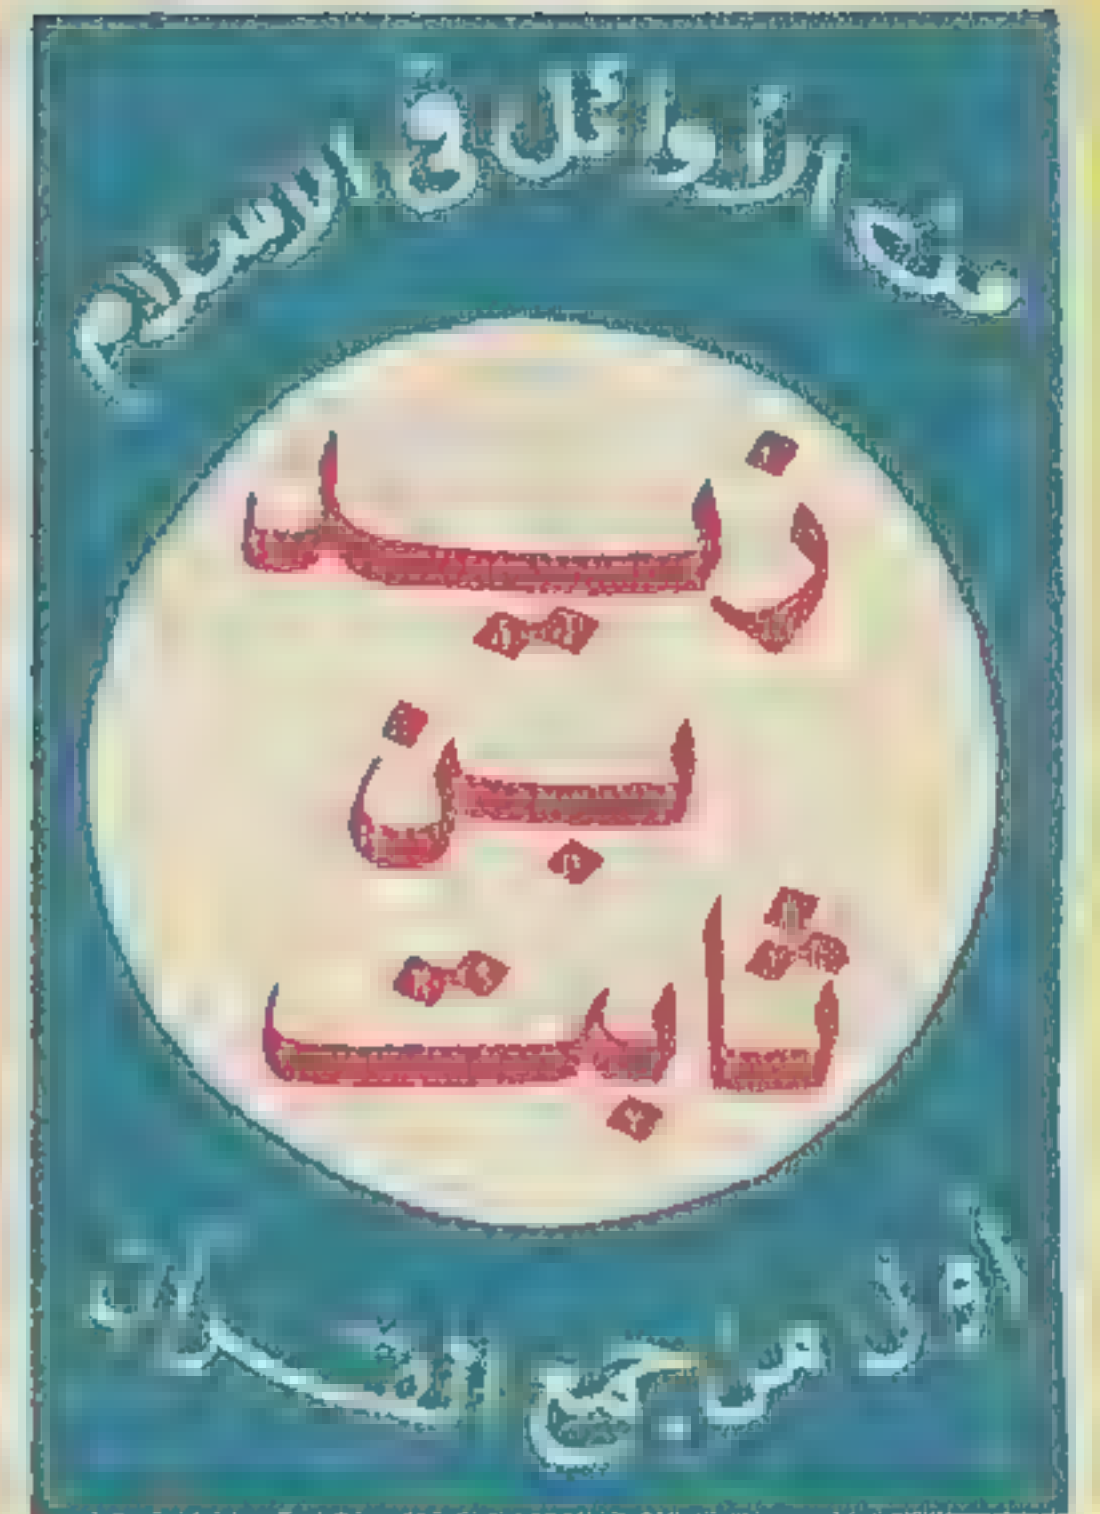 الأوائل في الإسلام
زيد
بن
ثابت
أول من جمع القرآن